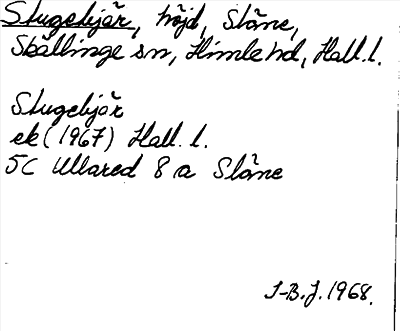 Stugebjär, höjd, Slåne,
Skällinge sn, Himle hd, Hall. l.
Stugebjär
ek (1967) Hall. l.
5C Ullared 8 a Slåne
J-B.J. 1968.